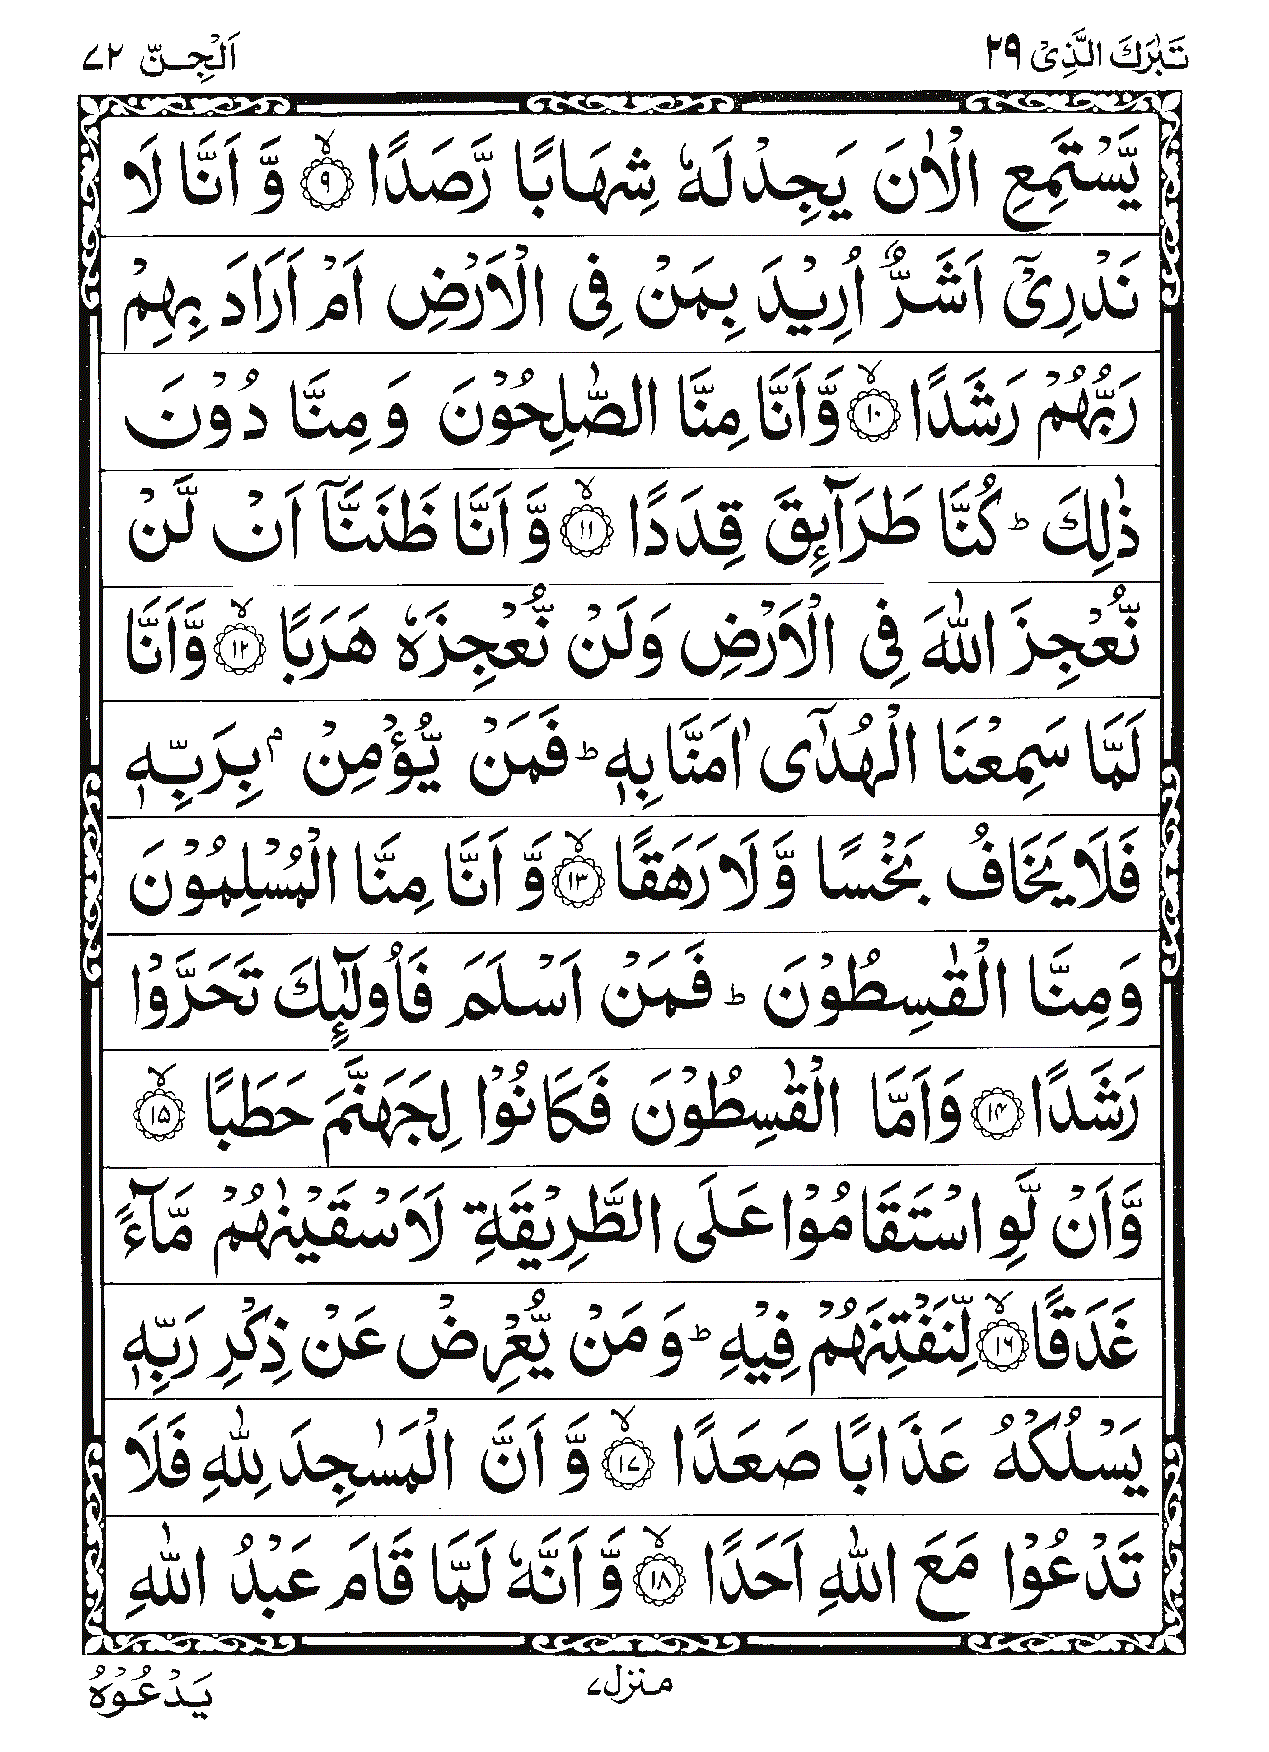 تَبٰرَكَ الَّذِیْ ٢٩
اَلْجِنّ ٧٢
یَّسْتَمِعِ الْاٰنَ یَجِدْ لَهٗ شِهَابًا رَّصَدًا ۙ﴿٩﴾ وَّ اَنَّا لَا
نَدْرِیْۤ اَشَرٌّ اُرِیْدَ بِمَنْ فِی الْاَرْضِ اَمْ اَرَادَ بِهِمْ
رَبُّهُمْ رَشَدًا ۙ﴿١٠﴾ وَّاَنَّا مِنَّا الصّٰلِحُوْنَ وَ مِنَّا دُوْنَ
ذٰلِكَ ؕ كُنَّا طَرَآىِٕقَ قِدَدًا ۙ﴿١١﴾ وَّ اَنَّا ظَنَنَّاۤ اَنْ لَّنْ
نُّعْجِزَ اللّٰهَ فِی الْاَرْضِ وَلَنْ نُّعْجِزَهٗ هَرَبًا ۙ﴿١٢﴾ وَّاَنَّا
لَمَّا سَمِعْنَا الْهُدٰۤی اٰمَنَّا بِهٖ ؕ فَمَنْ یُّؤْمِنْۢ بِرَبِّهٖ
فَلَا یَخَافُ بَخْسًا وَّ لَا رَهَقًا ۙ﴿١٣﴾ وَّ اَنَّا مِنَّا الْمُسْلِمُوْنَ
وَمِنَّا الْقٰسِطُوْنَ ؕ فَمَنْ اَسْلَمَ فَاُولٰٓىِٕكَ تَحَرَّوْا
رَشَدًا ﴿١٤﴾ وَاَمَّا الْقٰسِطُوْنَ فَكَانُوْا لِجَهَنَّمَ حَطَبًا ۙ﴿١٥﴾
وَّاَنْ لَّوِ اسْتَقَامُوْا عَلَی الطَّرِیْقَةِ لَاَسْقَیْنٰهُمْ مَّآءً
غَدَقًا ۙ﴿١٦﴾ لِّنَفْتِنَهُمْ فِیْهِ ؕ وَ مَنْ یُّعْرِضْ عَنْ ذِكْرِ رَبِّهٖ
یَسْلُكْهُ عَذَابًا صَعَدًا ۙ﴿١٧﴾ وَّ اَنَّ الْمَسٰجِدَ لِلّٰهِ فَلَا
تَدْعُوْا مَعَ اللّٰهِ اَحَدًا ۙ﴿١٨﴾ وَّ اَنَّهٗ لَمَّا قَامَ عَبْدُ اللّٰهِ
منزل ٧
یَدْعُوْهُ